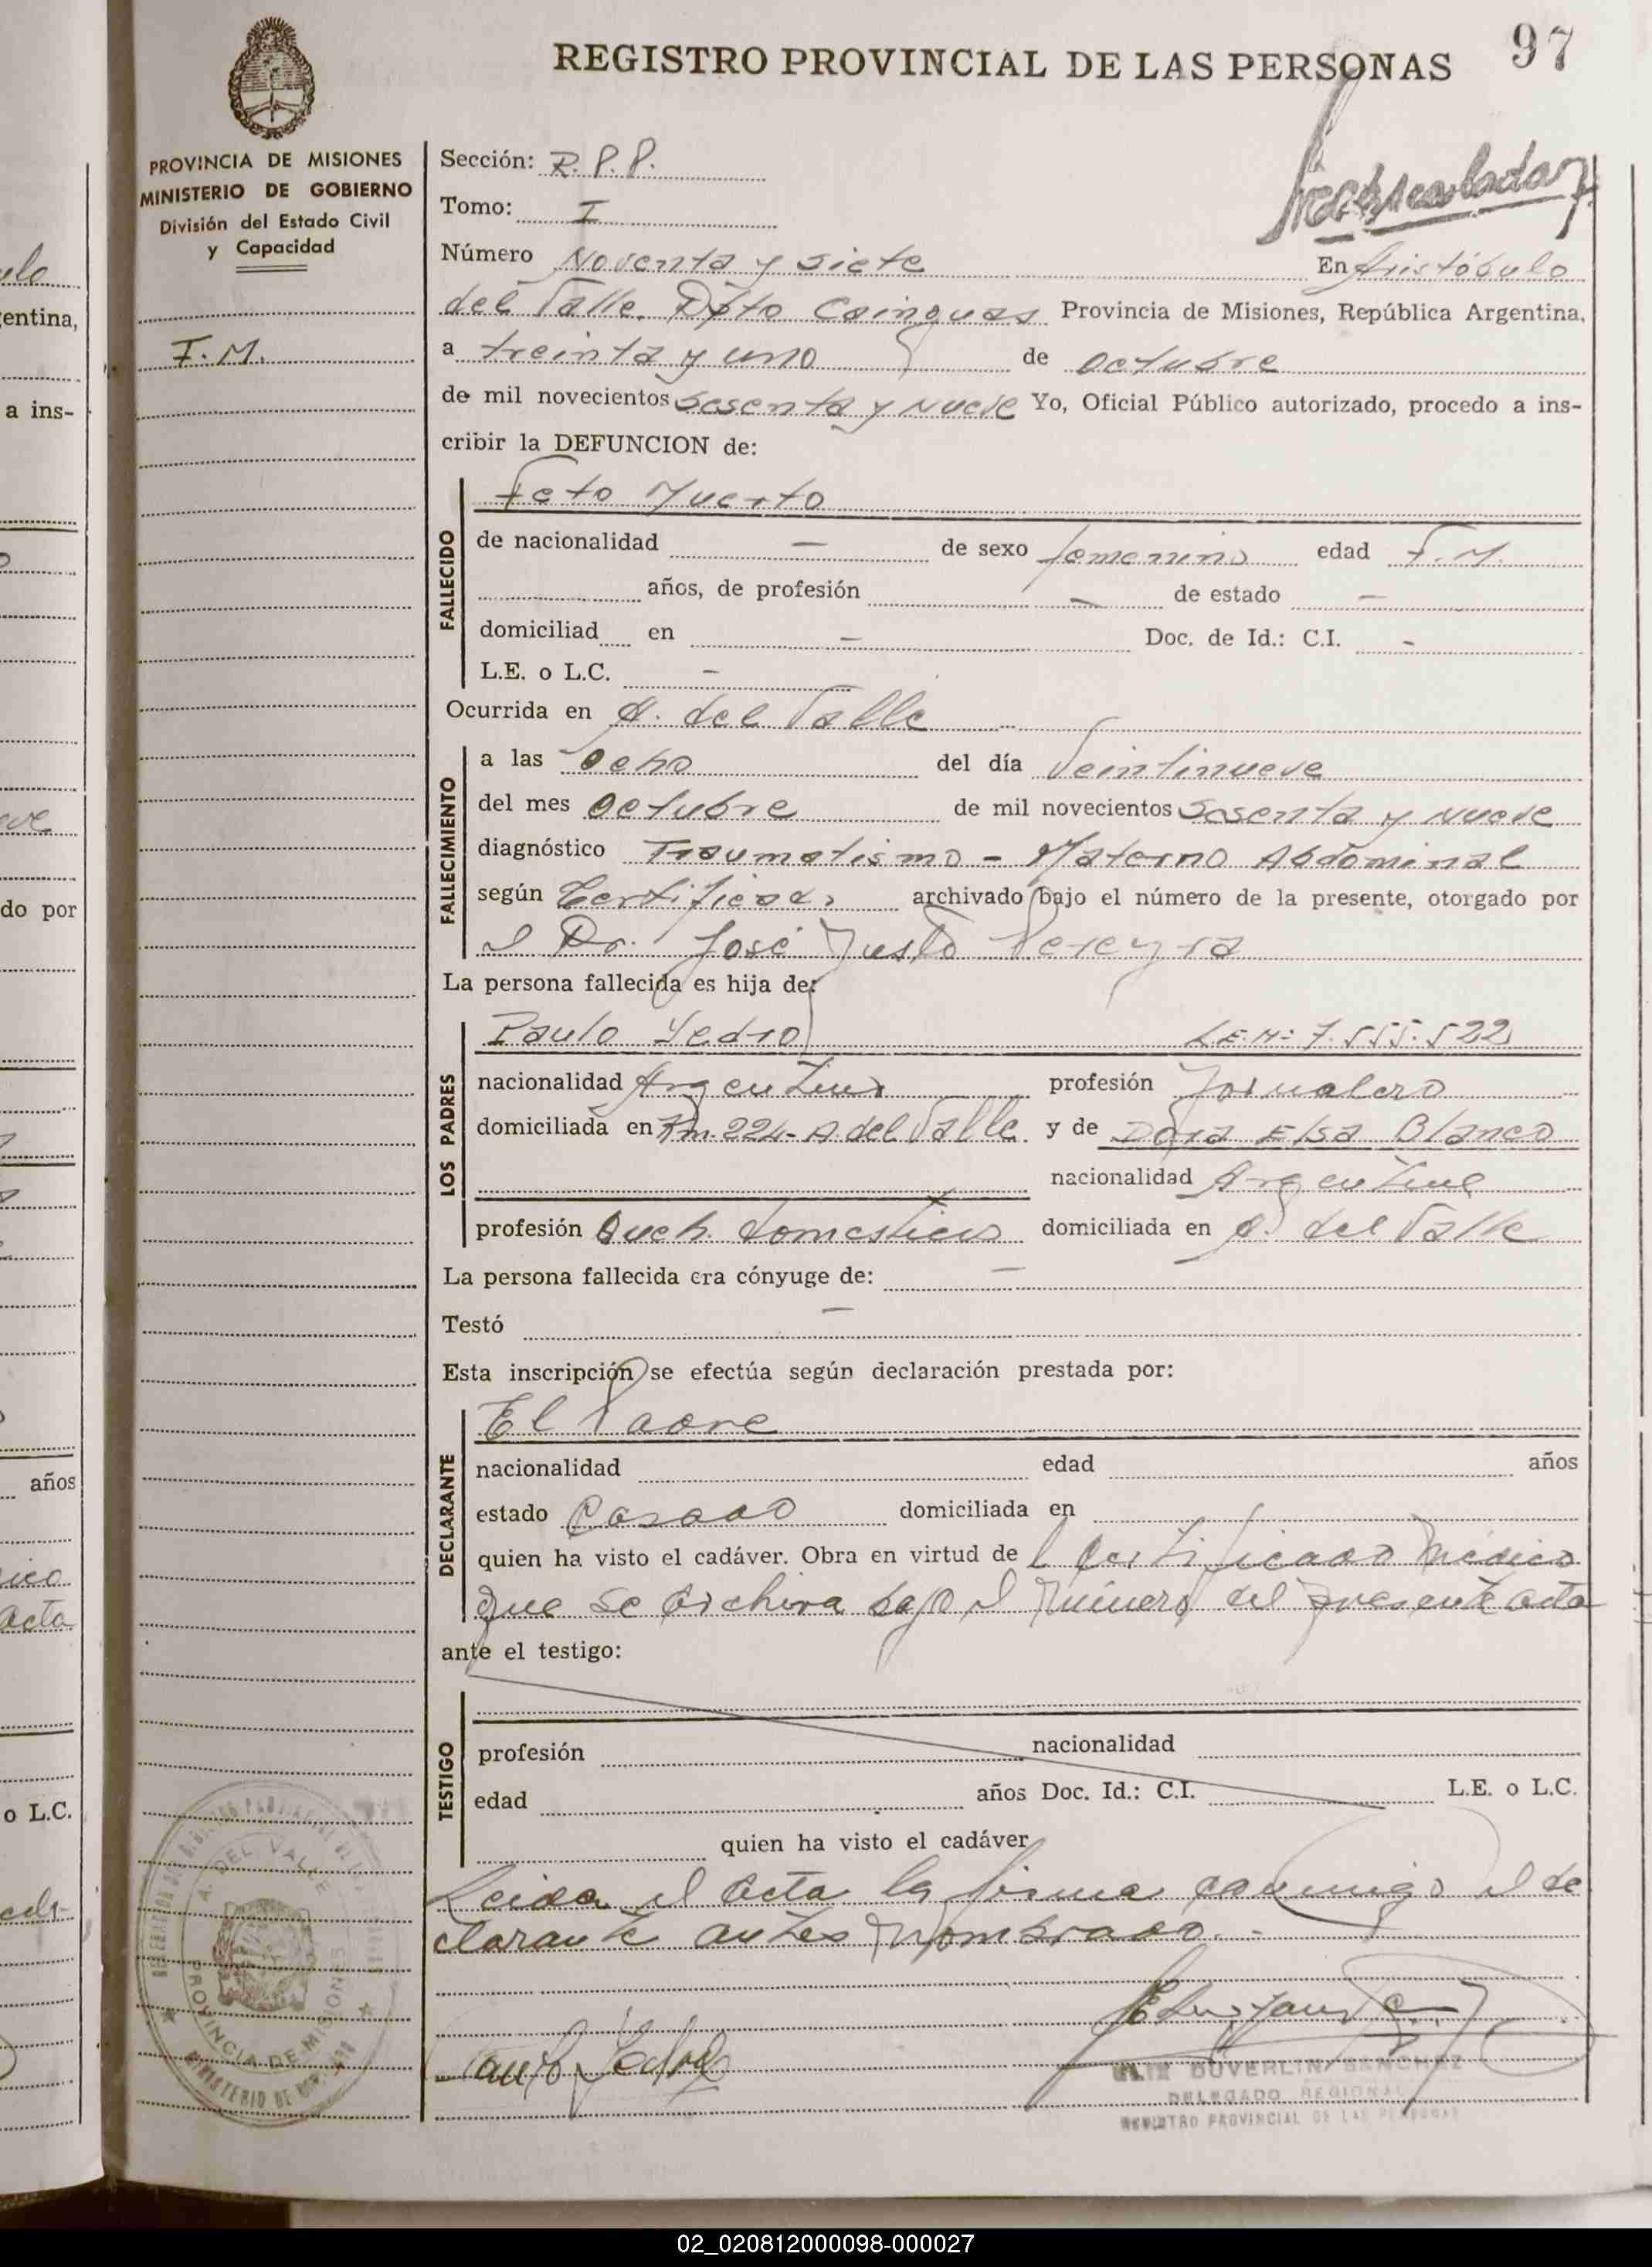 REGISTRO PROVINCIAL DE LAS PERSONAS
97
PROVINCIA DE MISIONES
MINISTERIO DE GOBIERNO
División del Estado Civil
y Capacidad
F.M.
Sección: R.P.P.
Tomo: I
Número Noventa y siete En Aristóbulo
del Valle. Dpto Cainguas Provincia de Misiones, República Argentina,
a treinta y uno de octubre
de mil novecientos Sesenta y Nueve Yo, Oficial Público autorizado, procedo a ins-
cribir la DEFUNCION de:
Feto Muerto
FALLECIDO
de nacionalidad — de sexo femenino edad F.M.
años, de profesión — de estado —
domiciliad en — Doc. de Id.: C.I. -
L.E. o L.C. -
Ocurrida en A. del Valle
FALLECIMIENTO
a las Ocho del día Veintinueve
del mes Octubre de mil novecientos Sesenta y Nueve
diagnóstico Traumatismo - Materno Abdominal
según Certificad. archivado bajo el número de la presente, otorgado por
el Dr. José Justo Pereyra
La persona fallecida es hija de:
LOS PADRES
Paulo Yedro L.E.N: 7.555.522
nacionalidad Argentino profesión Jornalero
domiciliada en Km. 224- A. del Valle y de Doña Elsa Blanco
nacionalidad Argentina
profesión Queh. domesticos domiciliada en A. del Valle
La persona fallecida era cónyuge de: —
Testó —
Esta inscripción se efectúa según declaración prestada por:
DECLARANTE
El Padre
nacionalidad edad años
estado Casado domiciliada en
quien ha visto el cadáver. Obra en virtud de l Certificado Médico
que se archiva bajo el Número del presente acta
ante el testigo:
TESTIGO
profesión nacionalidad
edad años Doc. Id.: C.I. L.E. o L.C.
quien ha visto el cadáver
Leida el Acta la firma conmigo el de
clarante antes Nombrado. -
A. DEL VALLE
PROVINCIA DE MISIONES
MINISTERIO DE
DUVERLIN SANCHEZ
DELEGADO REGIONAL
REGISTRO PROVINCIAL DE LAS PERSONAS
entina,
a ins-
do por
años
acta
o L.C.
02_020812000098-000027